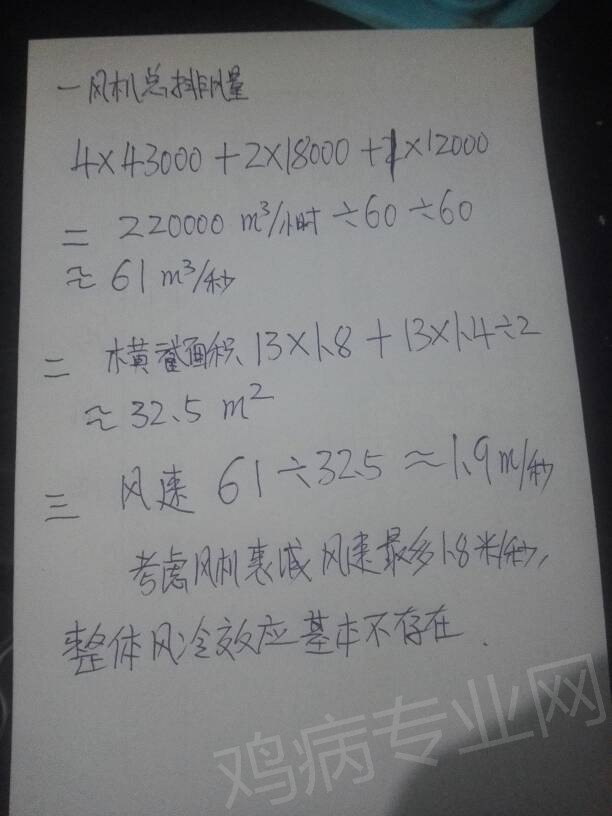 一 风机总排风量
4×43000+2×18000+1×12000
= 220000 m³/小时 ÷60÷60
≈ 61 m³/秒
二 横截面积 13×1.8+13×1.4÷2
≈ 32.5 m²
三 风速 61÷32.5≈1.9m/秒
考虑风机衰减 风速最多1.8米/秒,
整体风冷效应基本不存在.
鸡病专业网